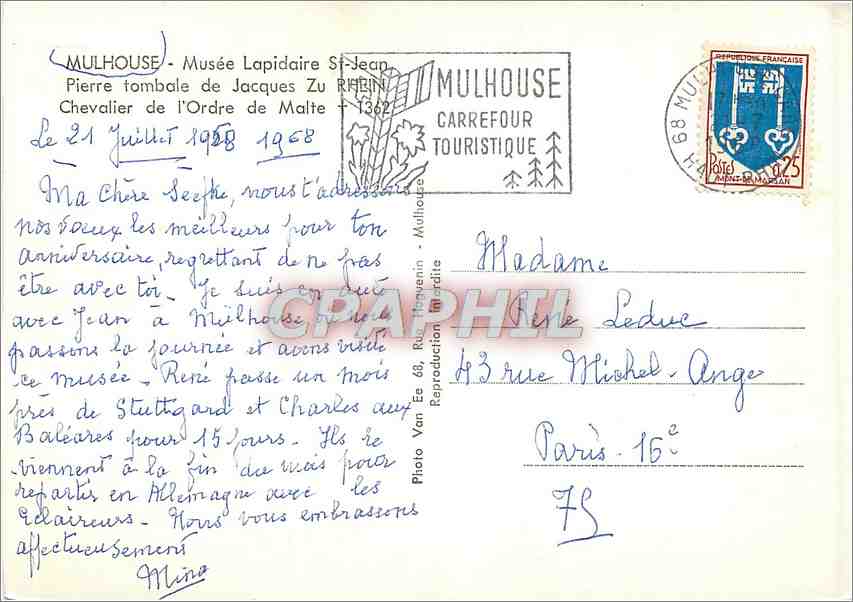 MULHOUSE - Musée Lapidaire St-Jean
Pierre tombale de Jacques Zu RHEIN
Chevalier de l'Ordre de Malte + 1362
Le 21 Juillet 1968 1968
Ma chère Seefke, nous t'adressons
nos voeux les meilleurs pour ton
anniversaire, regrettant de ne pas
être avec toi - Je suis en auto
avec Jean à Mulhouse où nous
passons la journée et avons visité
ce musée - René passe un mois
près de Stuttgard et Charles aux
Baléares pour 15 jours - Ils re
viennent à la fin du mois pour
repartir en Allemagne avec les
Eclaireurs - Nous vous embrassons
affectueusement
Mina
MULHOUSE
CARREFOUR
TOURISTIQUE
68 MULHOUSE
HAUT-RHIN
REPUBLIQUE FRANÇAISE
POSTES 0,25
MONT-DE-MARSAN
Photo Van Ee 68, Rue Hoguenin - Mulhouse
Reproduction Interdite
CPAPHIL
Madame
René Leduc
43 rue Michel-Ange
Paris-16e
75